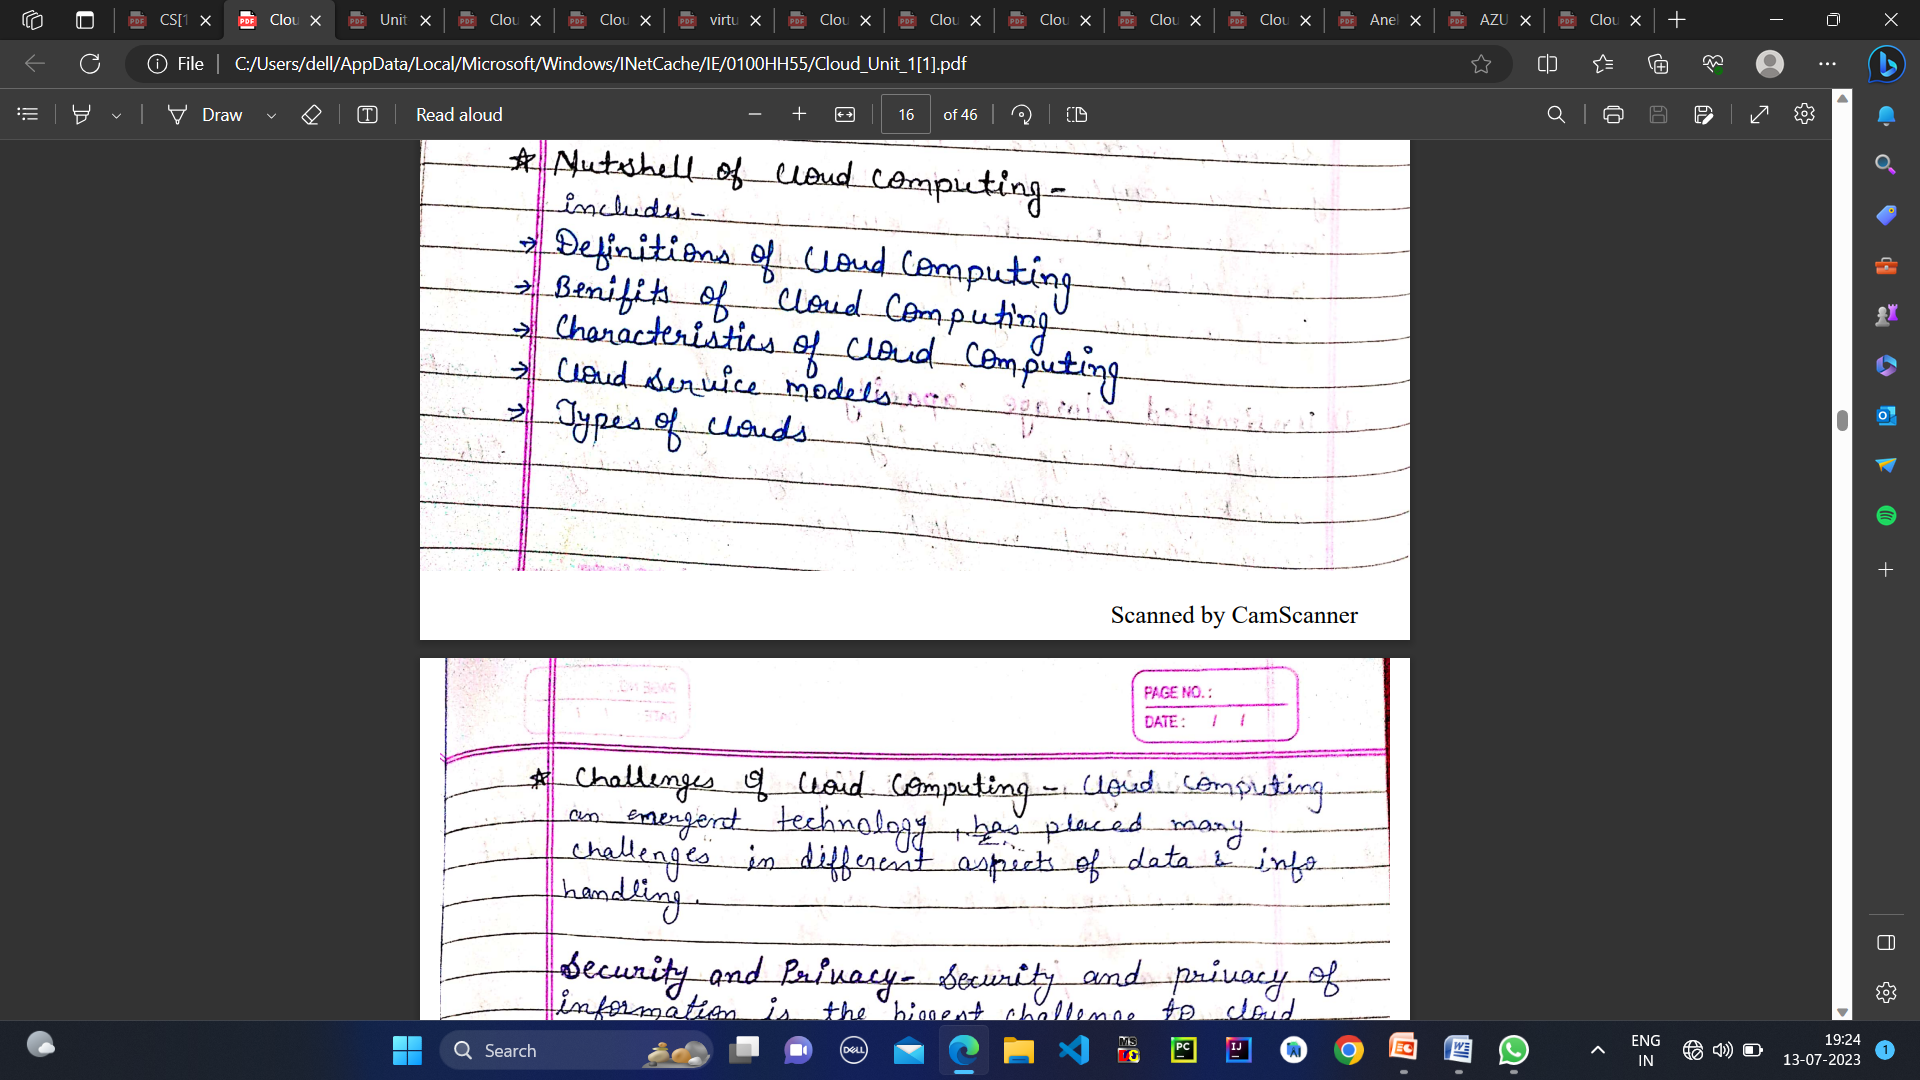 CS[1
Clou
Unit
Clou
Clou
virtu
Clou
Clou
Clou
Clou
Clou
Anel
AZU
Clou
File
C:/Users/dell/AppData/Local/Microsoft/Windows/INetCache/IE/0100HH55/Cloud_Unit_1[1].pdf
Draw
Read aloud
16 of 46
☆ Nutshell of Cloud Computing -
includes -
→ Definitions of Cloud Computing
→ Benifits of Cloud Computing
→ Characteristics of Cloud Computing
→ Cloud service models
→ Types of clouds
Scanned by CamScanner
PAGE NO. :
DATE : / /
☆ Challenges of Cloud Computing - Cloud computing
an emergent technology, has placed many
challenges in different aspects of data & info
handling.
Security and Privacy - Security and privacy of
information is the biggest challenge to cloud
Search
DELL
MS
PC
IJ
ENG
IN
19:24
13-07-2023
1